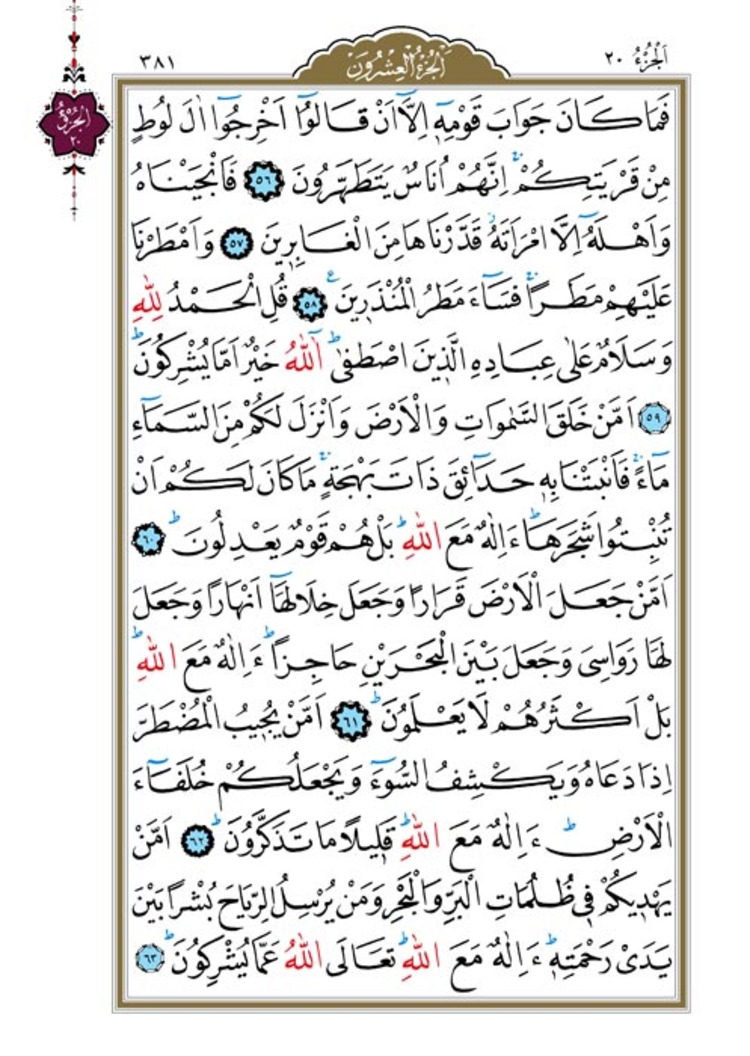 اَلْجُزْءُ ٢٠
اَلْجُزْءُ الْعِشْرُونَ
٣٨١
اَلْجُزْءُ ٢٠
فَمَا كَانَ جَوَابَ قَوْمِهٖٓ اِلَّٓا اَنْ قَالُٓوا اَخْرِجُٓوا اٰلَ لُوطٍ
مِنْ قَرْيَتِكُمْۚ اِنَّهُمْ اُنَاسٌ يَتَطَهَّرُونَ ﴿٥٦﴾ فَاَنْجَيْنَاهُ
وَاَهْلَهُٓ اِلَّا امْرَاَتَهُۘ قَدَّرْنَاهَا مِنَ الْغَابِرٖينَ ﴿٥٧﴾ وَاَمْطَرْنَا
عَلَيْهِمْ مَطَرًاۚ فَسَٓاءَ مَطَرُ الْمُنْذَرٖينَ۟ ﴿٥٨﴾ قُلِ الْحَمْدُ لِلّٰهِ
وَسَلَامٌ عَلٰى عِبَادِهِ الَّذٖينَ اصْطَفٰىؕ آٰللّٰهُ خَيْرٌ اَمَّا يُشْرِكُونَؕ
﴿٥٩﴾ اَمَّنْ خَلَقَ السَّمٰوَاتِ وَالْاَرْضَ وَاَنْزَلَ لَكُمْ مِنَ السَّمَٓاءِ
مَٓاءًۚ فَاَنْبَتْنَا بِهٖ حَدَٓائِقَ ذَاتَ بَهْجَةٍۚ مَا كَانَ لَكُمْ اَنْ
تُنْبِتُوا شَجَرَهَاؕ ءَاِلٰهٌ مَعَ اللّٰهِؕ بَلْ هُمْ قَوْمٌ يَعْدِلُونَؕ ﴿٦٠﴾
اَمَّنْ جَعَلَ الْاَرْضَ قَرَارًا وَجَعَلَ خِلَالَهَٓا اَنْهَارًا وَجَعَلَ
لَهَا رَوَاسِيَ وَجَعَلَ بَيْنَ الْبَحْرَيْنِ حَاجِزًاؕ ءَاِلٰهٌ مَعَ اللّٰهِؕ
بَلْ اَكْثَرُهُمْ لَا يَعْلَمُونَؕ ﴿٦١﴾ اَمَّنْ يُجٖيبُ الْمُضْطَرَّ
اِذَا دَعَاهُ وَيَكْشِفُ السُّٓوءَ وَيَجْعَلُكُمْ خُلَفَٓاءَ
الْاَرْضِؕ ءَاِلٰهٌ مَعَ اللّٰهِؕ قَلٖيلًا مَا تَذَكَّرُونَؕ ﴿٦٢﴾ اَمَّنْ
يَهْدٖيكُمْ فٖي ظُلُمَاتِ الْبَرِّ وَالْبَحْرِ وَمَنْ يُرْسِلُ الرِّيَاحَ بُشْرًا بَيْنَ
يَدَيْ رَحْمَتِهٖؕ ءَاِلٰهٌ مَعَ اللّٰهِؕ تَعَالَى اللّٰهُ عَمَّا يُشْرِكُونَؕ ﴿٦٣﴾